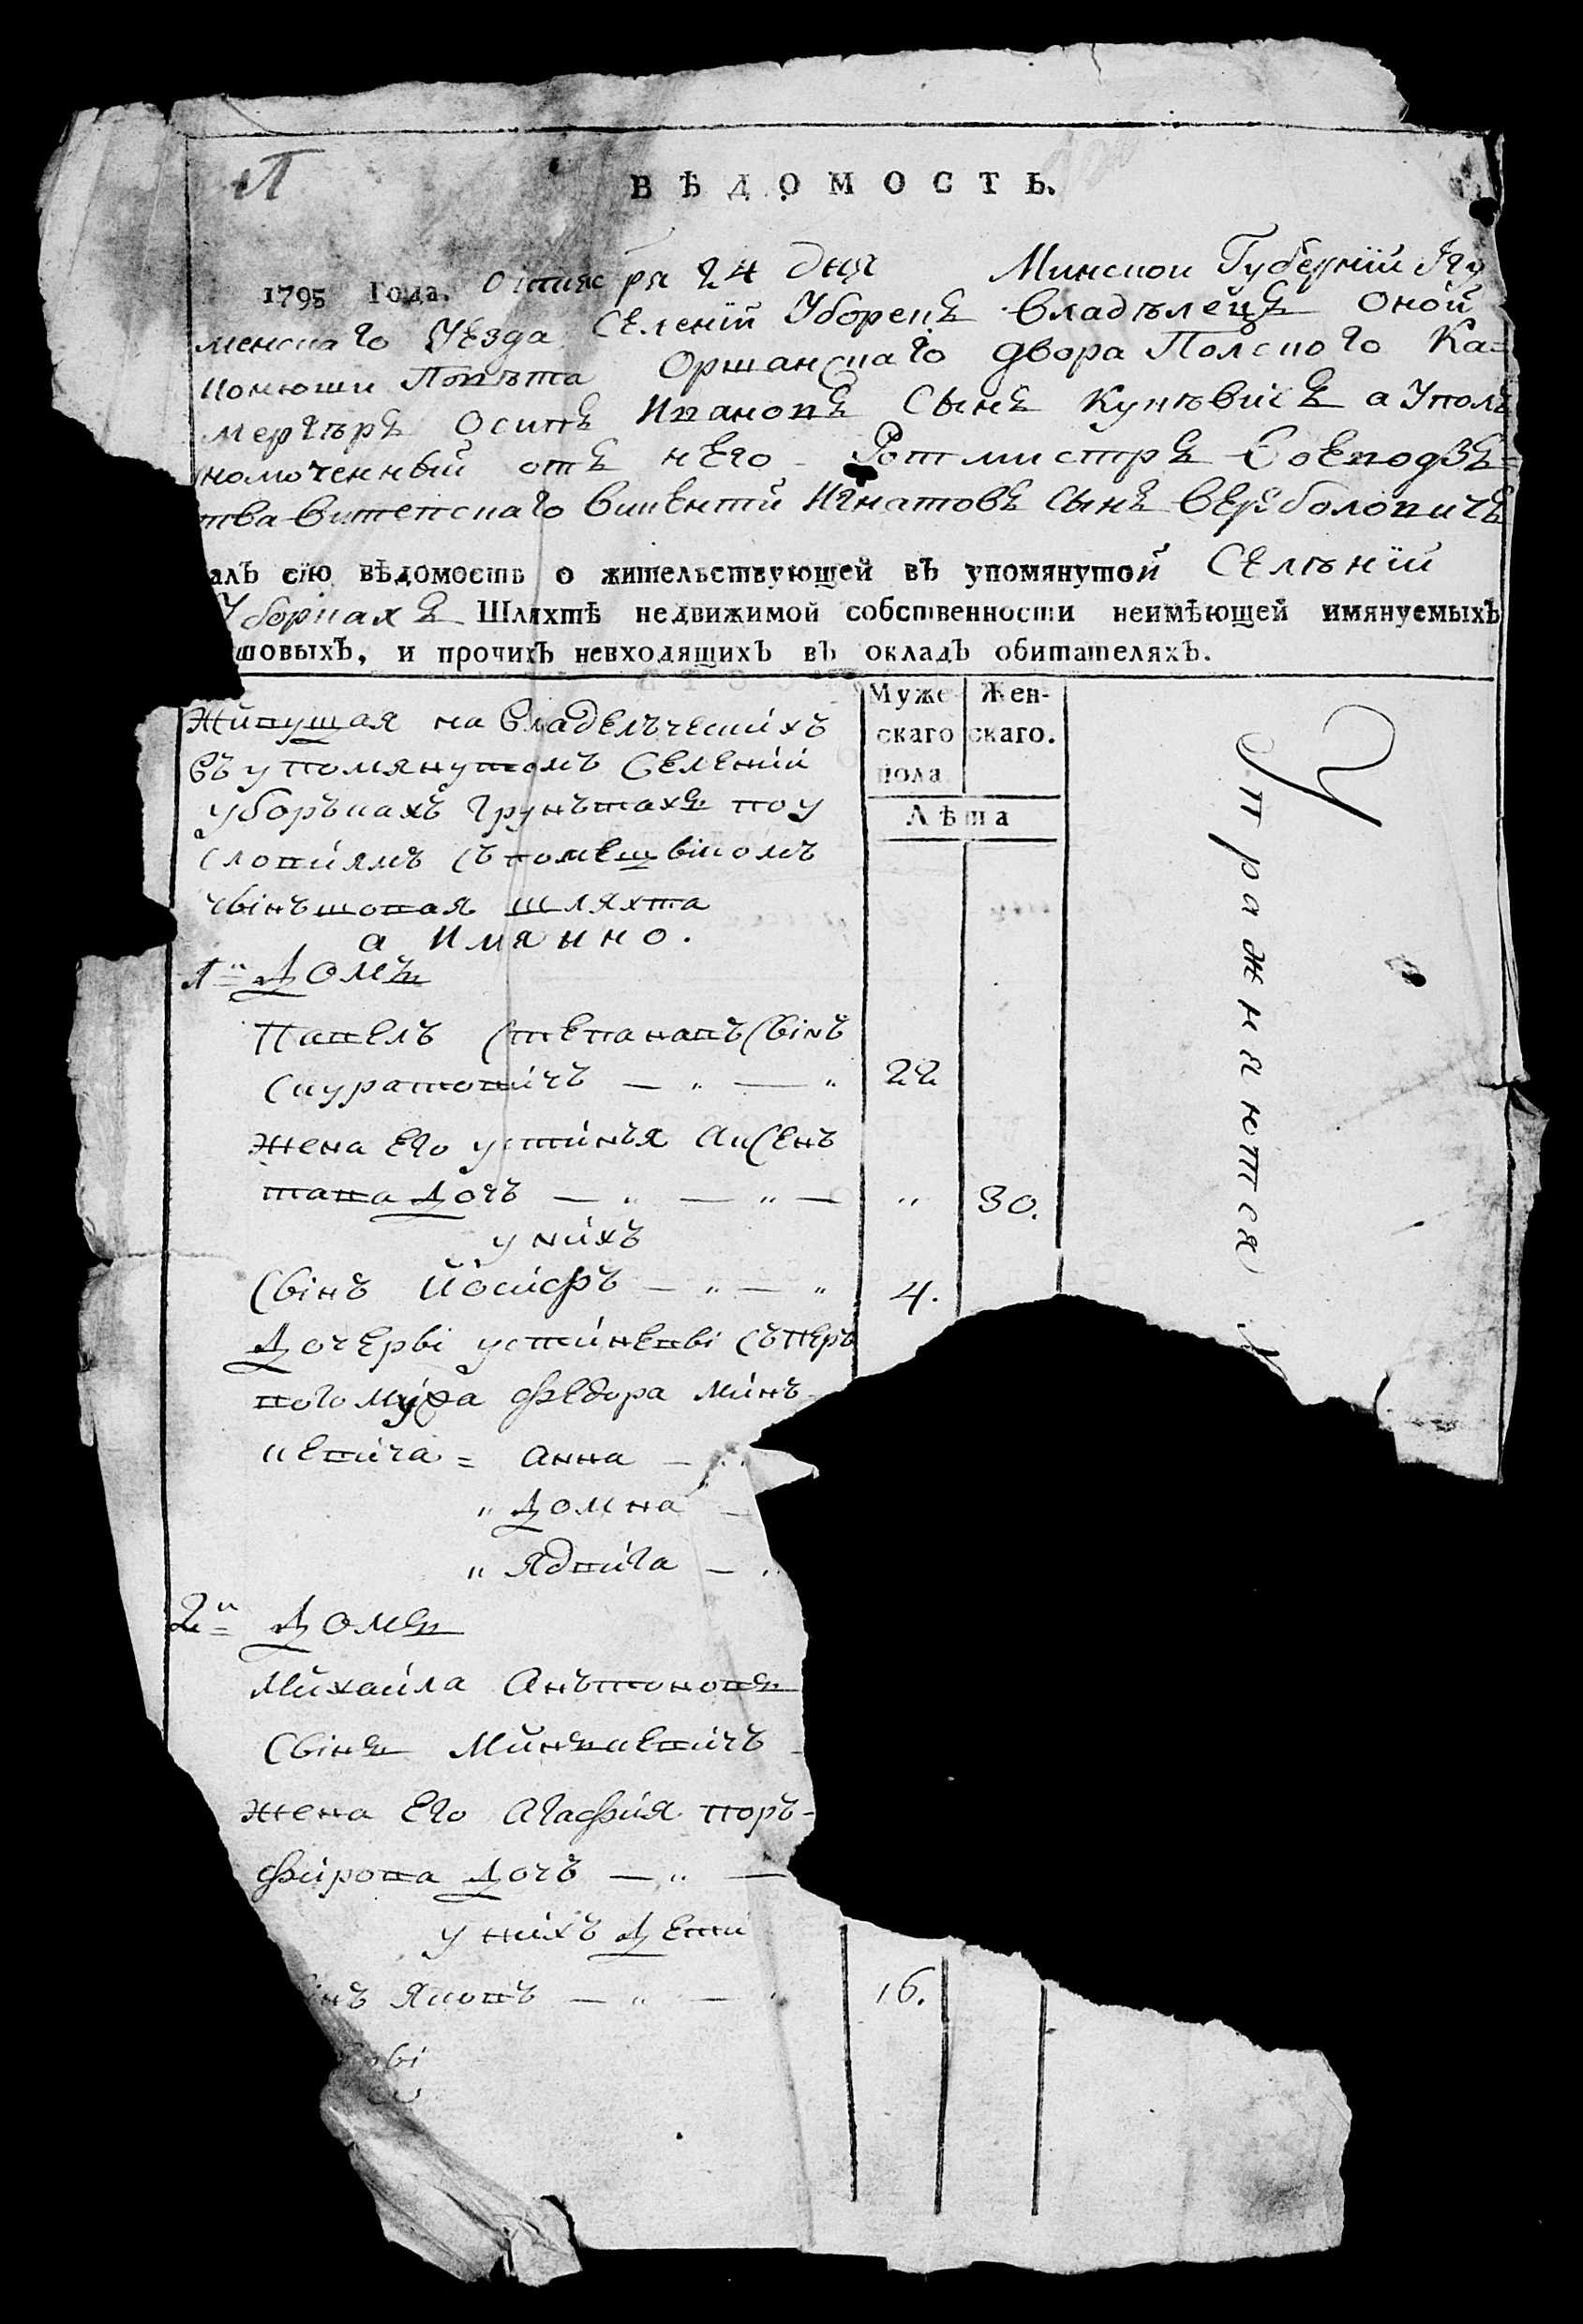 ВѢДОМОСТЬ.
1795 Года. Октября 24 дня Минскои Губерніи Игу
менскаго Уезда Селеніи Уборекъ владѣлецъ оной
конюши Повѣта Оршанскаго двора Полского Ка=
мергеръ Осипъ Ивановъ Сынъ а Упол
номоченный отъ него Ротмистръ Воеводз=
тва Витепскаго Викентй Игнатовъ сынъ
алъ сїю вѣдомость о жительствующей въ упомянутой Селѣнїи
Уборкахъ Шляхтѣ недвижимой собственности неимѣющей имянуемыхъ
шовыхъ, и прочихъ невходящихъ въ окладъ обитателяхъ.
Муже- Жен-
скаго скаго.
пола
Лѣта
Живущая на владелъческихъ
въ упомянутомъ Селеніи
уборъкахъ грунътахъ по у
словиямъ съ помещвикомъ
чвінъшовая шляхта
а имянно.
1й = Домъ
Павелъ Степановъ Сынъ
Скуратовичъ — " — " 22
жена его устинъя Аксенъ
това Дочъ — " — " — " 30.
у нихъ
Сынъ Иосифъ — " — " 4.
Дочеры устинены съ пер
вого мужа Федора Минъ-
кевича = Анна —
" Домна —
" Ядвига —
2й = Домъ
Михаила Анътоновъ
Сынъ Минъкевичъ
жена его Агафия поръ-
фирова Дочъ — " —
у нихъ Дети
інъ Яковъ — " — " 16.
ерьі
Упражняются